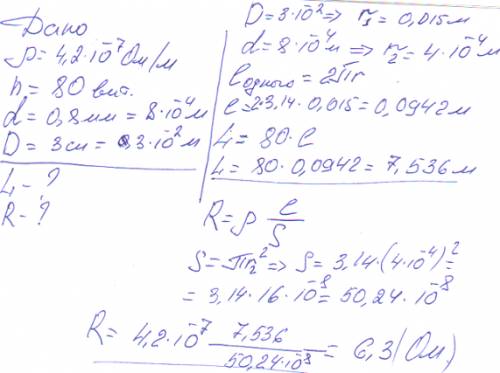 Дано
ρ = 4,2·10⁻⁷ Ом/м
n = 80 вит.
d = 0,8 мм = 8·10⁻⁴ м
D = 3 см = 3·10⁻² м
L - ?
R - ?
D = 3·10⁻² ⇒ r₁ = 0,015 м
d = 8·10⁻⁴ м ⇒ r₂ = 4·10⁻⁴ м
ℓ одного = 2πr
ℓ = 2·3,14·0,015 = 0,0942 м
L = 80·ℓ
L = 80·0,0942 = 7,536 м
R = ρ ℓ/S
S = πr₂² ⇒ S = 3,14·(4·10⁻⁴)² =
= 3,14·16·10⁻⁸ = 50,24·10⁻⁸
R = 4,2·10⁻⁷ 7,536/50,24·10⁻⁸ = 6,3 (Ом)